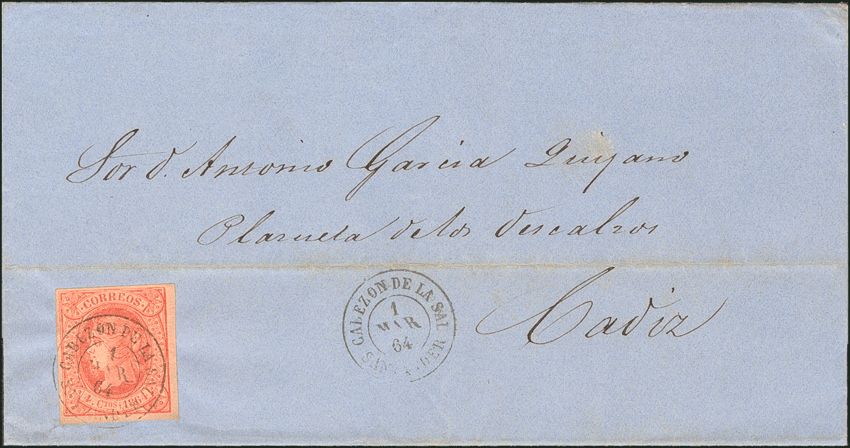 Sor d. Antonio Garcia Quijano
Plazuela de los descalzos
Cadiz
CORREOS
4 C.TOS 1864
CABEZON DE LA SAL
1
MAR
64
CABEZON DE LA SAL
1
MAR
64
SANTANDER